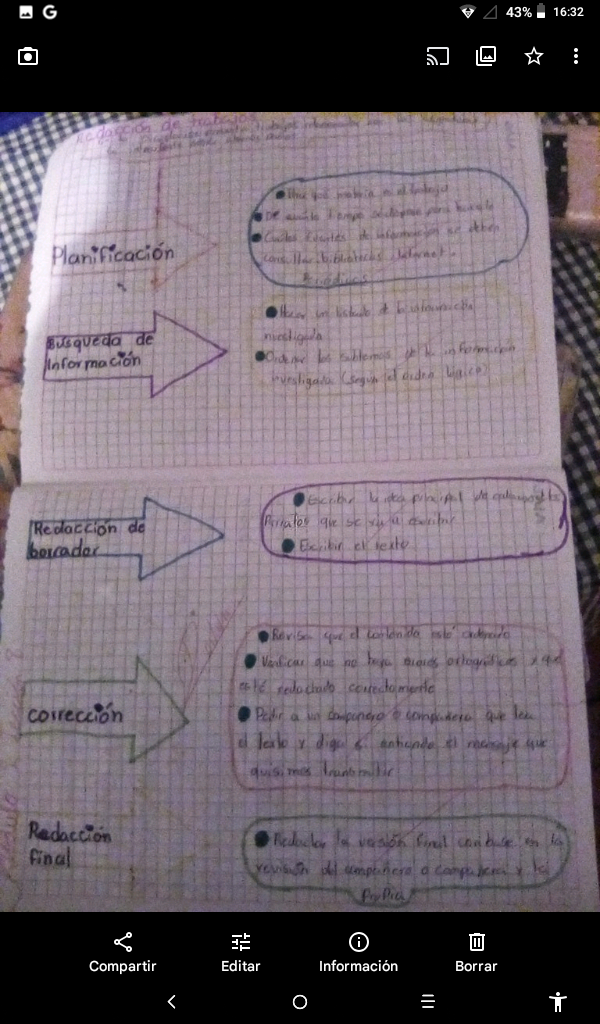 43% 16:32
Redacción de trabajos
Planificación
De cuánto tiempo se dispone para
Cuáles fuentes de información se deben
consultar bibliotecas, Internet.
Periódicos
Búsqueda de
Información
Hacer un listado de la información
investigada
Ordenar los subtemas de la información
investigada (según el orden lógico)
Redacción de
borrador
Escribir la idea principal de
Párrafos que se va a escribir
Escribir el texto
corrección
Revisar que el contenido esté ordenado
Verificar que no haya errores ortográficos y que
esté redactado correctamente
Pedir a un compañero o compañera que lea
el texto y diga si entiende el mensaje que
quisimos transmitir
Redacción
final
Redactar la versión final con base en la
revisión del compañero o compañera y la
Propia
Compartir
Editar
Información
Borrar